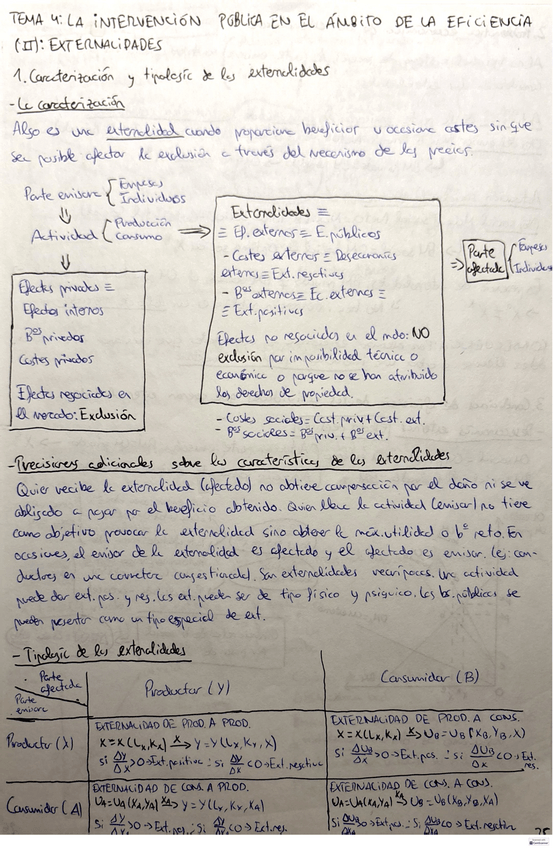 TEMA 4: LA INTERVENCIÓN PÚBLICA EN EL ÁMBITO DE LA EFICIENCIA
(II): EXTERNALIDADES
1. Caracterización y tipología de las externalidades
- La caracterización
Algo es una externalidad cuando proporciona beneficios u ocasiona costes sin que
sea posible efectuar la exclusión a través del mecanismo de los precios.
Parte emisora { Empresas
Individuos
Actividad { Producción
Consumo
Efectos privados ≡
Efectos internos
Bºs privados
Costes privados
Efectos negociados en
el mercado: Exclusión
Externalidades ≡
≡ Ef. externos ≡ E. públicos
- Costes externos ≡ Deseconomías
externas ≡ Ext. negativas
- Bºs externos ≡ Ec. externas ≡
≡ Ext. positivas
Efectos no negociados en el mdo: NO
exclusión por imposibilidad técnica o
económica o porque no se han atribuido
los derechos de propiedad.
Parte
afectada { Empresas
Individuos
- Costes sociales = Cost. priv + Cost. ext.
- Bºs sociales = Bºs priv. + Bº ext.
- Precisiones adicionales sobre las características de las externalidades
Quien recibe la externalidad (afectado) no obtiene compensación por el daño ni se ve
obligado a pagar por el beneficio obtenido. Quien lleva la actividad (emisor) no tiene
como objetivo provocar la externalidad sino obtener la máx. utilidad o bº neto. En
ocasiones, el emisor de la externalidad es afectado y el afectado es emisor. (ej: con-
ductores en una carretera congestionada). Son externalidades recíprocas. Una actividad
puede dar ext. pos. y neg. Las ext. pueden ser de tipo físico y psíquico. Los bs. públicos se
pueden presentar como un tipo especial de ext.
- Tipología de las externalidades
Parte
afectada
Parte
emisora
Productor (Y)
Consumidor (B)
Productor (X)
EXTERNALIDAD DE PROD. A PROD.
X = X(Lx, Kx) X→ Y = Y(Ly, Ky, X)
Si ΔY/ΔX > 0 → Ext. positiva ∴ Si ΔY/ΔX < 0 → Ext. negativa
EXTERNALIDAD DE PROD. A CONS.
X = X(Lx, Kx) X→ UB = UB(XB, YB, X)
Si ΔUB/ΔX > 0 → Ext. pos. ∴ Si ΔUB/ΔX < 0 → Ext.
neg.
Consumidor (A)
EXTERNALIDAD DE CONS. A PROD.
UA = UA(XA, YA) XA→ Y = Y(Ly, Ky, XA)
Si ΔY/ΔXA > 0 → Ext. pos. ∴ Si ΔY/ΔXA < 0 → Ext. neg.
EXTERNALIDAD DE CONS. A CONS.
UA = UA(XA, YA) XA→ UB = UB(XB, YB, XA)
Si ΔUB/ΔXA > 0 → Ext. pos. ∴ Si ΔUB/ΔXA < 0 → Ext. negativa